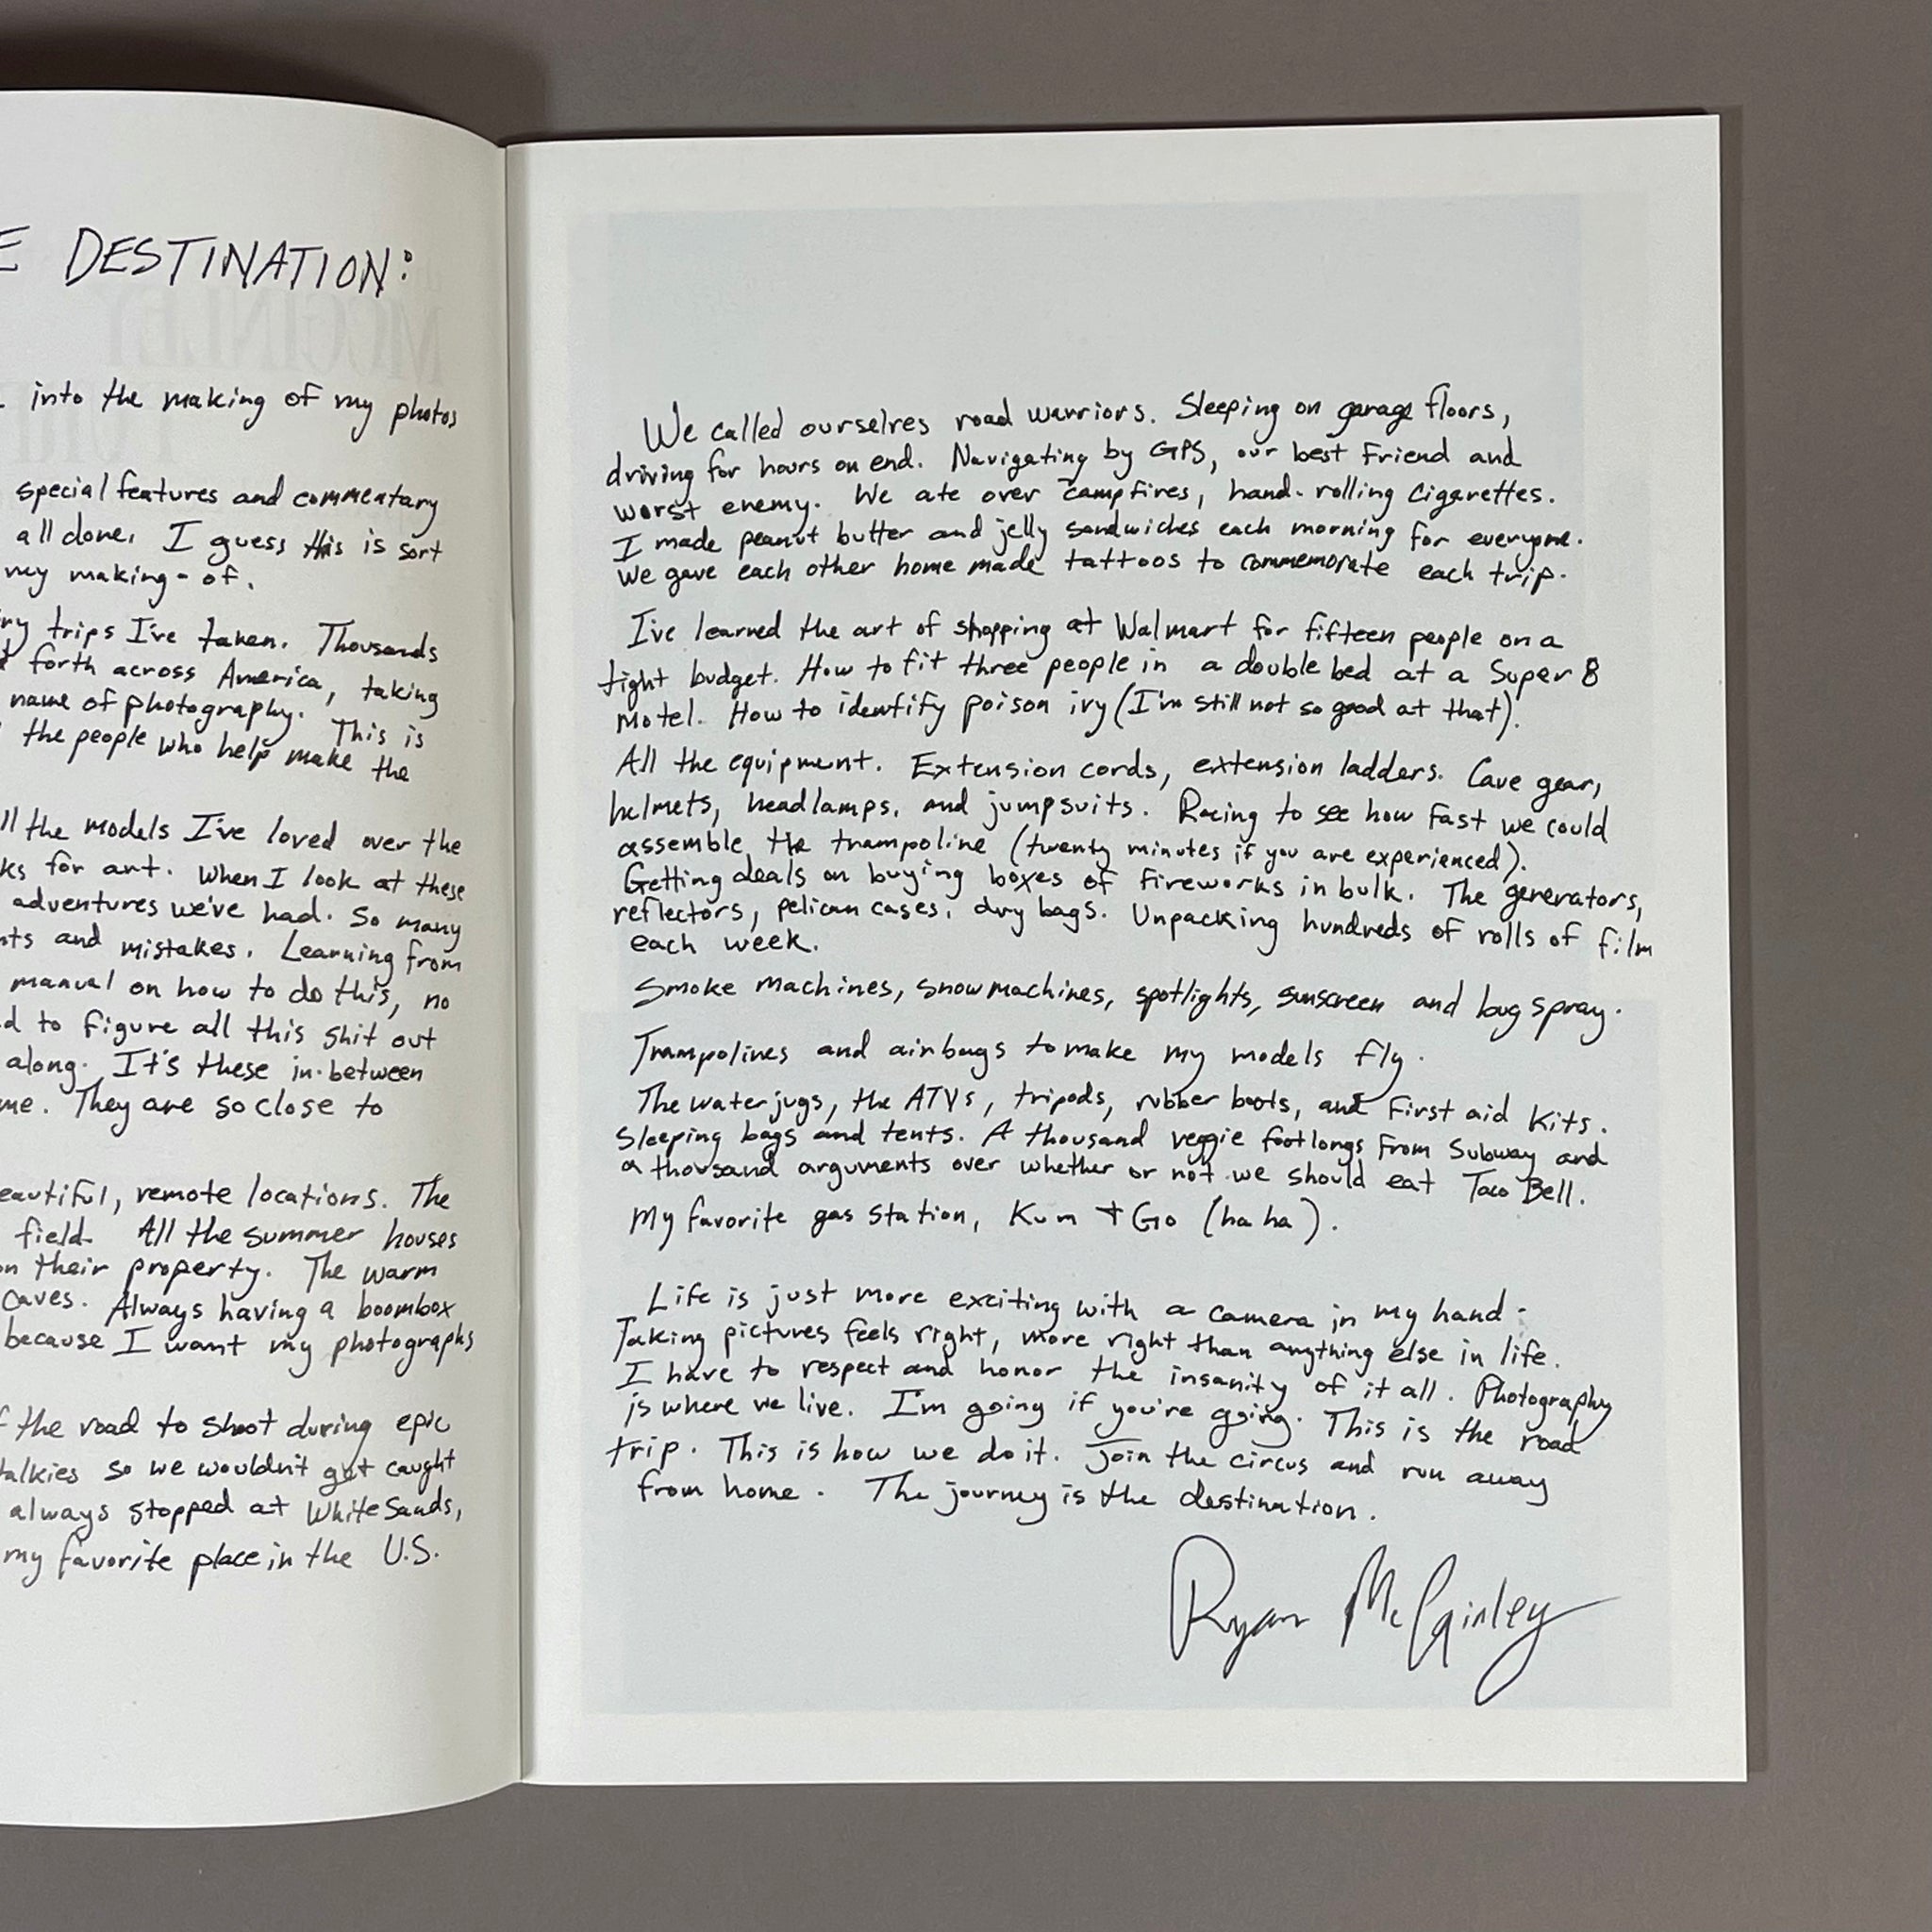 E DESTINATION:
into the making of my photos
special features and commentary
all done. I guess this is sort
my making-of.
trips I've taken. Thousands
forth across America, taking
name of photography. This is
the people who help make the
all the models I've loved over the
for art. When I look at these
adventures we've had. So many
and mistakes. Learning from
manual on how to do this, no
to figure all this shit out
along. It's these in-between
me. They are so close to
beautiful, remote locations. The
field. All the summer houses
on their property. The warm
caves. Always having a boombox
because I want my photographs
the road to shoot during epic
talkies so we wouldn't get caught
always stopped at White Sands,
my favorite place in the U.S.
We called ourselves road warriors. Sleeping on garage floors,
driving for hours on end. Navigating by GPS, our best friend and
worst enemy. We ate over campfires, hand-rolling cigarettes.
I made peanut butter and jelly sandwiches each morning for everyone.
We gave each other home made tattoos to commemorate each trip.
I've learned the art of shopping at Walmart for fifteen people on a
tight budget. How to fit three people in a double bed at a Super 8
Motel. How to identify poison ivy (I'm still not so good at that).
All the equipment. Extension cords, extension ladders. Cave gear,
helmets, headlamps, and jumpsuits. Racing to see how fast we could
assemble the trampoline (twenty minutes if you are experienced).
Getting deals on buying boxes of fireworks in bulk. The generators,
reflectors, pelican cases, dry bags. Unpacking hundreds of rolls of film
each week.
Smoke machines, snow machines, spotlights, sunscreen and bug spray.
Trampolines and airbags to make my models fly.
The water jugs, the ATVs, tripods, rubber boots, and first aid kits.
Sleeping bags and tents. A thousand veggie footlongs from Subway and
a thousand arguments over whether or not we should eat Taco Bell.
My favorite gas station, Kum + Go (ha ha).
Life is just more exciting with a camera in my hand.
Taking pictures feels right, more right than anything else in life.
I have to respect and honor the insanity of it all. Photography
is where we live. I'm going if you're going. This is the road
trip. This is how we do it. Join the circus and run away
from home. The journey is the destination.
Ryan McGinley